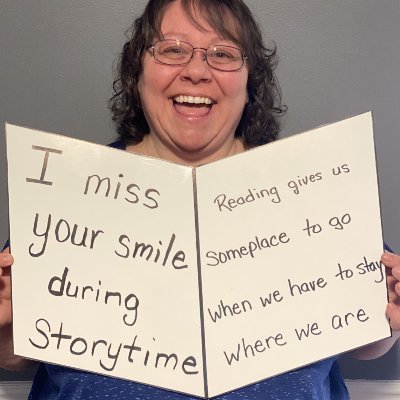 I miss
your smile
during
Storytime
Reading gives us
someplace to go
when we have to stay
where we are